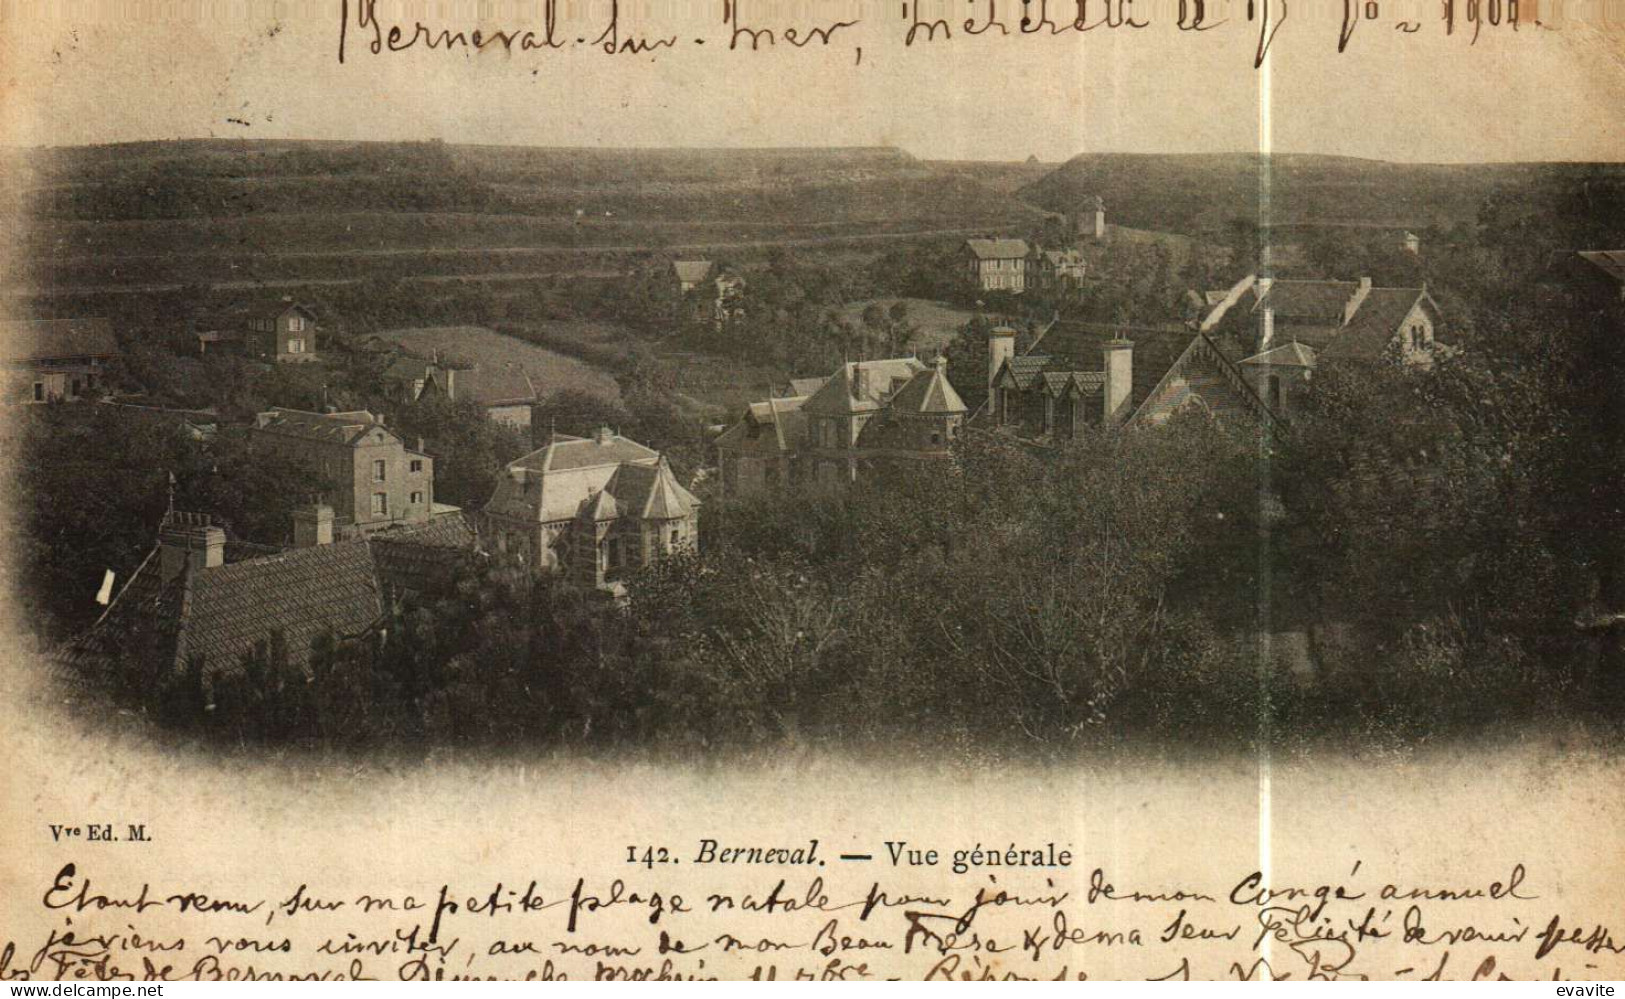 Berneval-sur-Mer, Mercredi le
Vve Ed. M.
142. Berneval. — Vue générale
Etant venu, sur ma petite plage natale pour jouir de mon Congé annuel
je viens vous inviter, au nom de mon Beau Frère & de ma Seur Félicité de venir passer
les Fêtes de Berneval Dimanche prochain 11 7bre - Réponse
delcampe.net
evavite